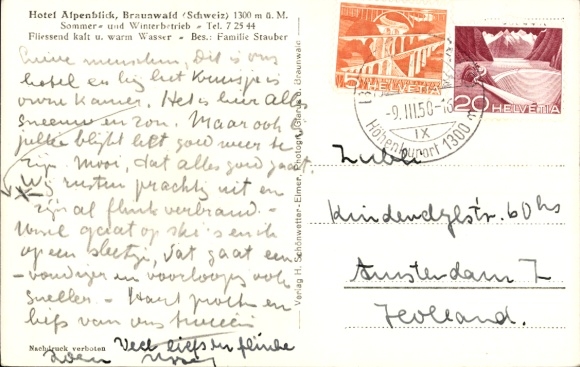 Hotel Alpenblick, Braunwald (Schweiz) 1300 m ü. M.
Sommer- und Winterbetrieb - Tel 7 25 44
Fliessend kalt u. warm Wasser - Bes.: Familie Stauber
Lieve menschen, Dit is ons
hotel en bij het kruisje is
onze kamer. Het is hier alle
sneeuw en zon. Maar ook
jullie blijkt het goed weer te
zijn. Mooi, dat alles goed gaat.
Wij rusten prachtig uit en
zijn al flink verbrand. -
gaat op ski's en ik
op een sleetje, dat gaat een-
voudiger en voorloopig ook
sneller. - Hart. groeten en
liefs van ons
Veel liefs en flinke
Nachdruck verboten
Verlag H. Schönwetter-Elmer, Photogr., Glarus u. Braunwald
HELVETIA
5
20 HELVETIA
-9.III.50-18
IX
Höhenkurort 1300 m
60 hs
Amsterdam Z
Holland.